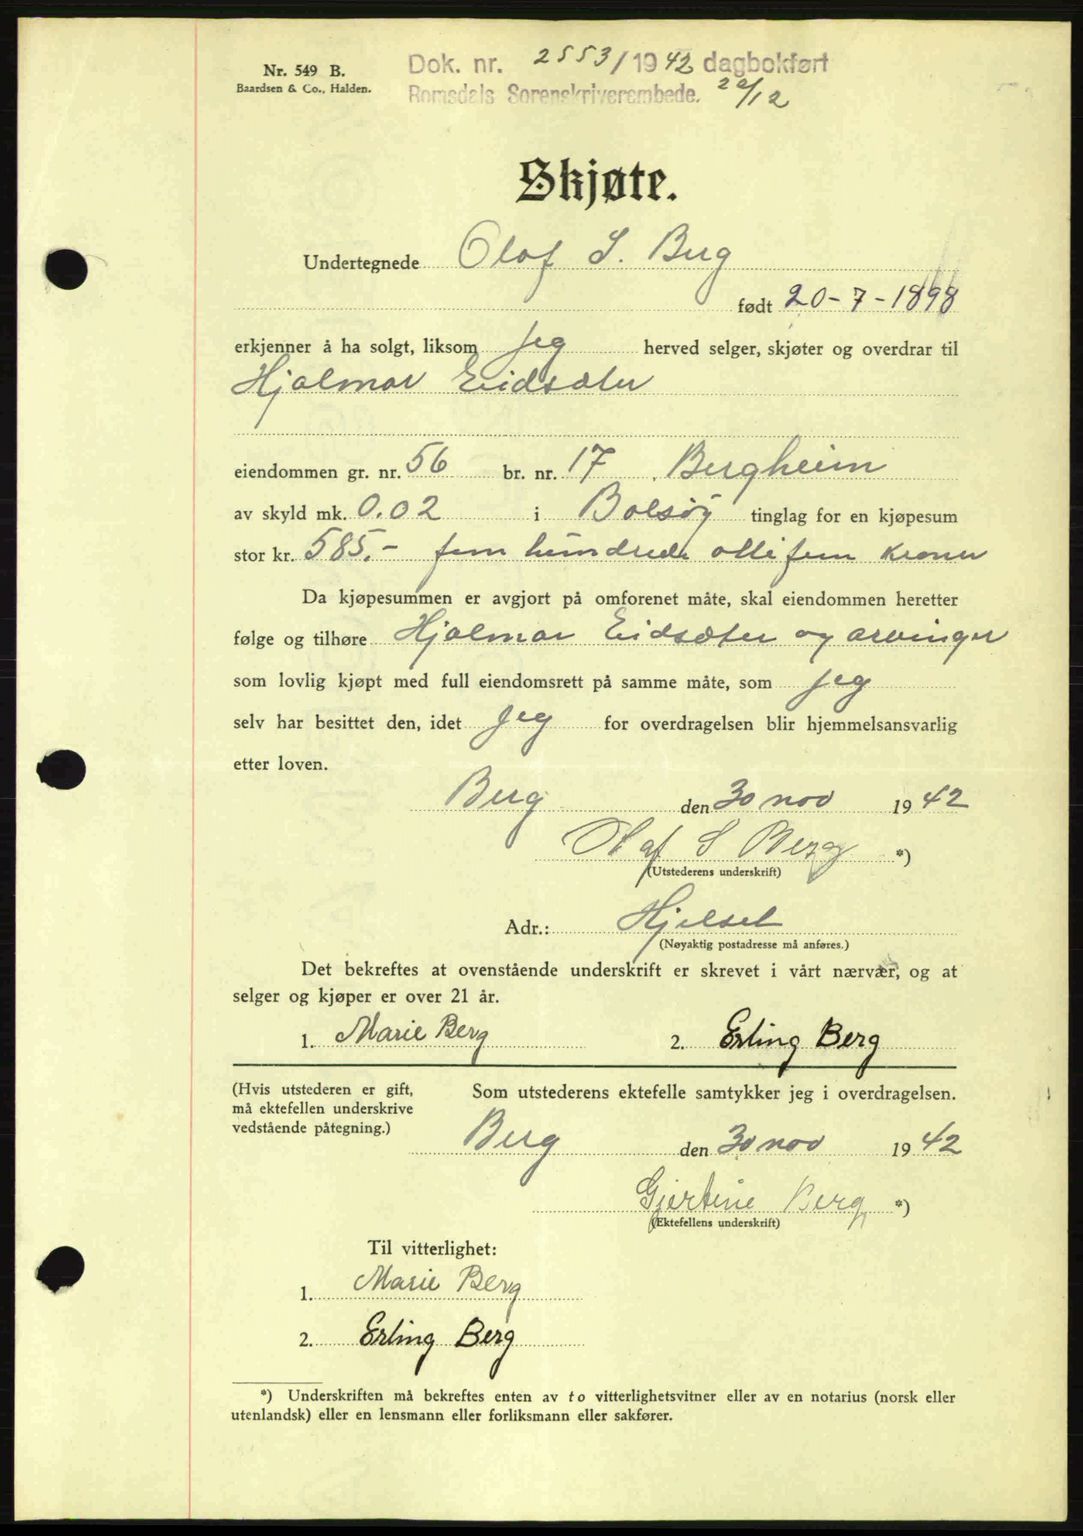 Nr. 549 B.
Baardsen & Co., Halden.
Dok. nr. 2553/1942 dagbokført
Romsdals Sorenskriverembede. 22/12
Skjøte.
Undertegnede Olaf S. Berg
født 20-7-1898
erkjenner å ha solgt, liksom jeg herved selger, skjøter og overdrar til
Hjalmar Eidsæter
eiendommen gr. nr. 56 br. nr. 17 . Bergheim
av skyld mk. 0.02 i Bolsøy tinglag for en kjøpesum
stor kr. 585.- fem hundrede otti fem kroner
Da kjøpesummen er avgjort på omforenet måte, skal eiendommen heretter
følge og tilhøre Hjalmar Eidsæter og arvinger
som lovlig kjøpt med full eiendomsrett på samme måte, som jeg
selv har besittet den, idet jeg for overdragelsen blir hjemmelsansvarlig
etter loven.
Berg den 30 nov 1942
Olaf S Berg *)
(Utstederens underskrift)
Adr.: Hjelset
(Nøyaktig postadresse må anføres.)
Det bekreftes at ovenstående underskrift er skrevet i vårt nærvær, og at
selger og kjøper er over 21 år.
1. Marie Berg 2. Erling Berg
(Hvis utstederen er gift,
må ektefellen underskrive
vedstående påtegning.)
Som utstederens ektefelle samtykker jeg i overdragelsen.
Berg den 30 nov 1942
Gjertine Berg *)
(Ektefellens underskrift)
Til vitterlighet:
1. Marie Berg
2. Erling Berg
*) Underskriften må bekreftes enten av to vitterlighetsvitner eller av en notarius (norsk eller
utenlandsk) eller en lensmann eller forliksmann eller sakfører.